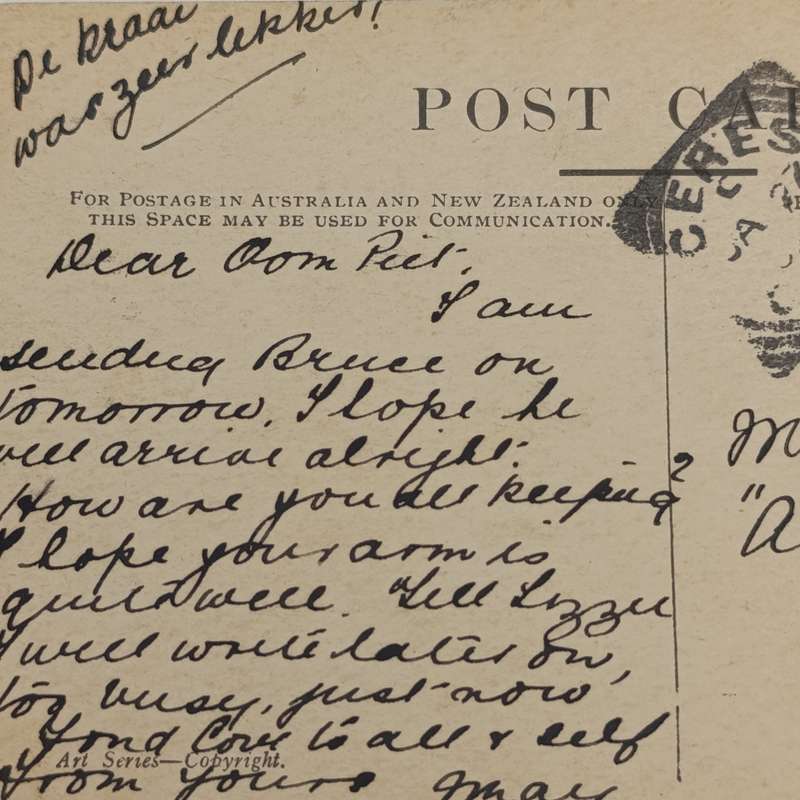 De kraai
was zeer lekker!
POST CA
FOR POSTAGE IN AUSTRALIA AND NEW ZEALAND ONLY
THIS SPACE MAY BE USED FOR COMMUNICATION.
CERES
Dear Oom Piet,
I am
sending Bruce on
tomorrow. I hope he
will arrive alright.
How are you all keeping?
I hope your arm is
quite well. Tell Lizzie
I will write later on,
too busy, just now
Fond love to all & self
Art Series—Copyright.
From yours May
M
"A